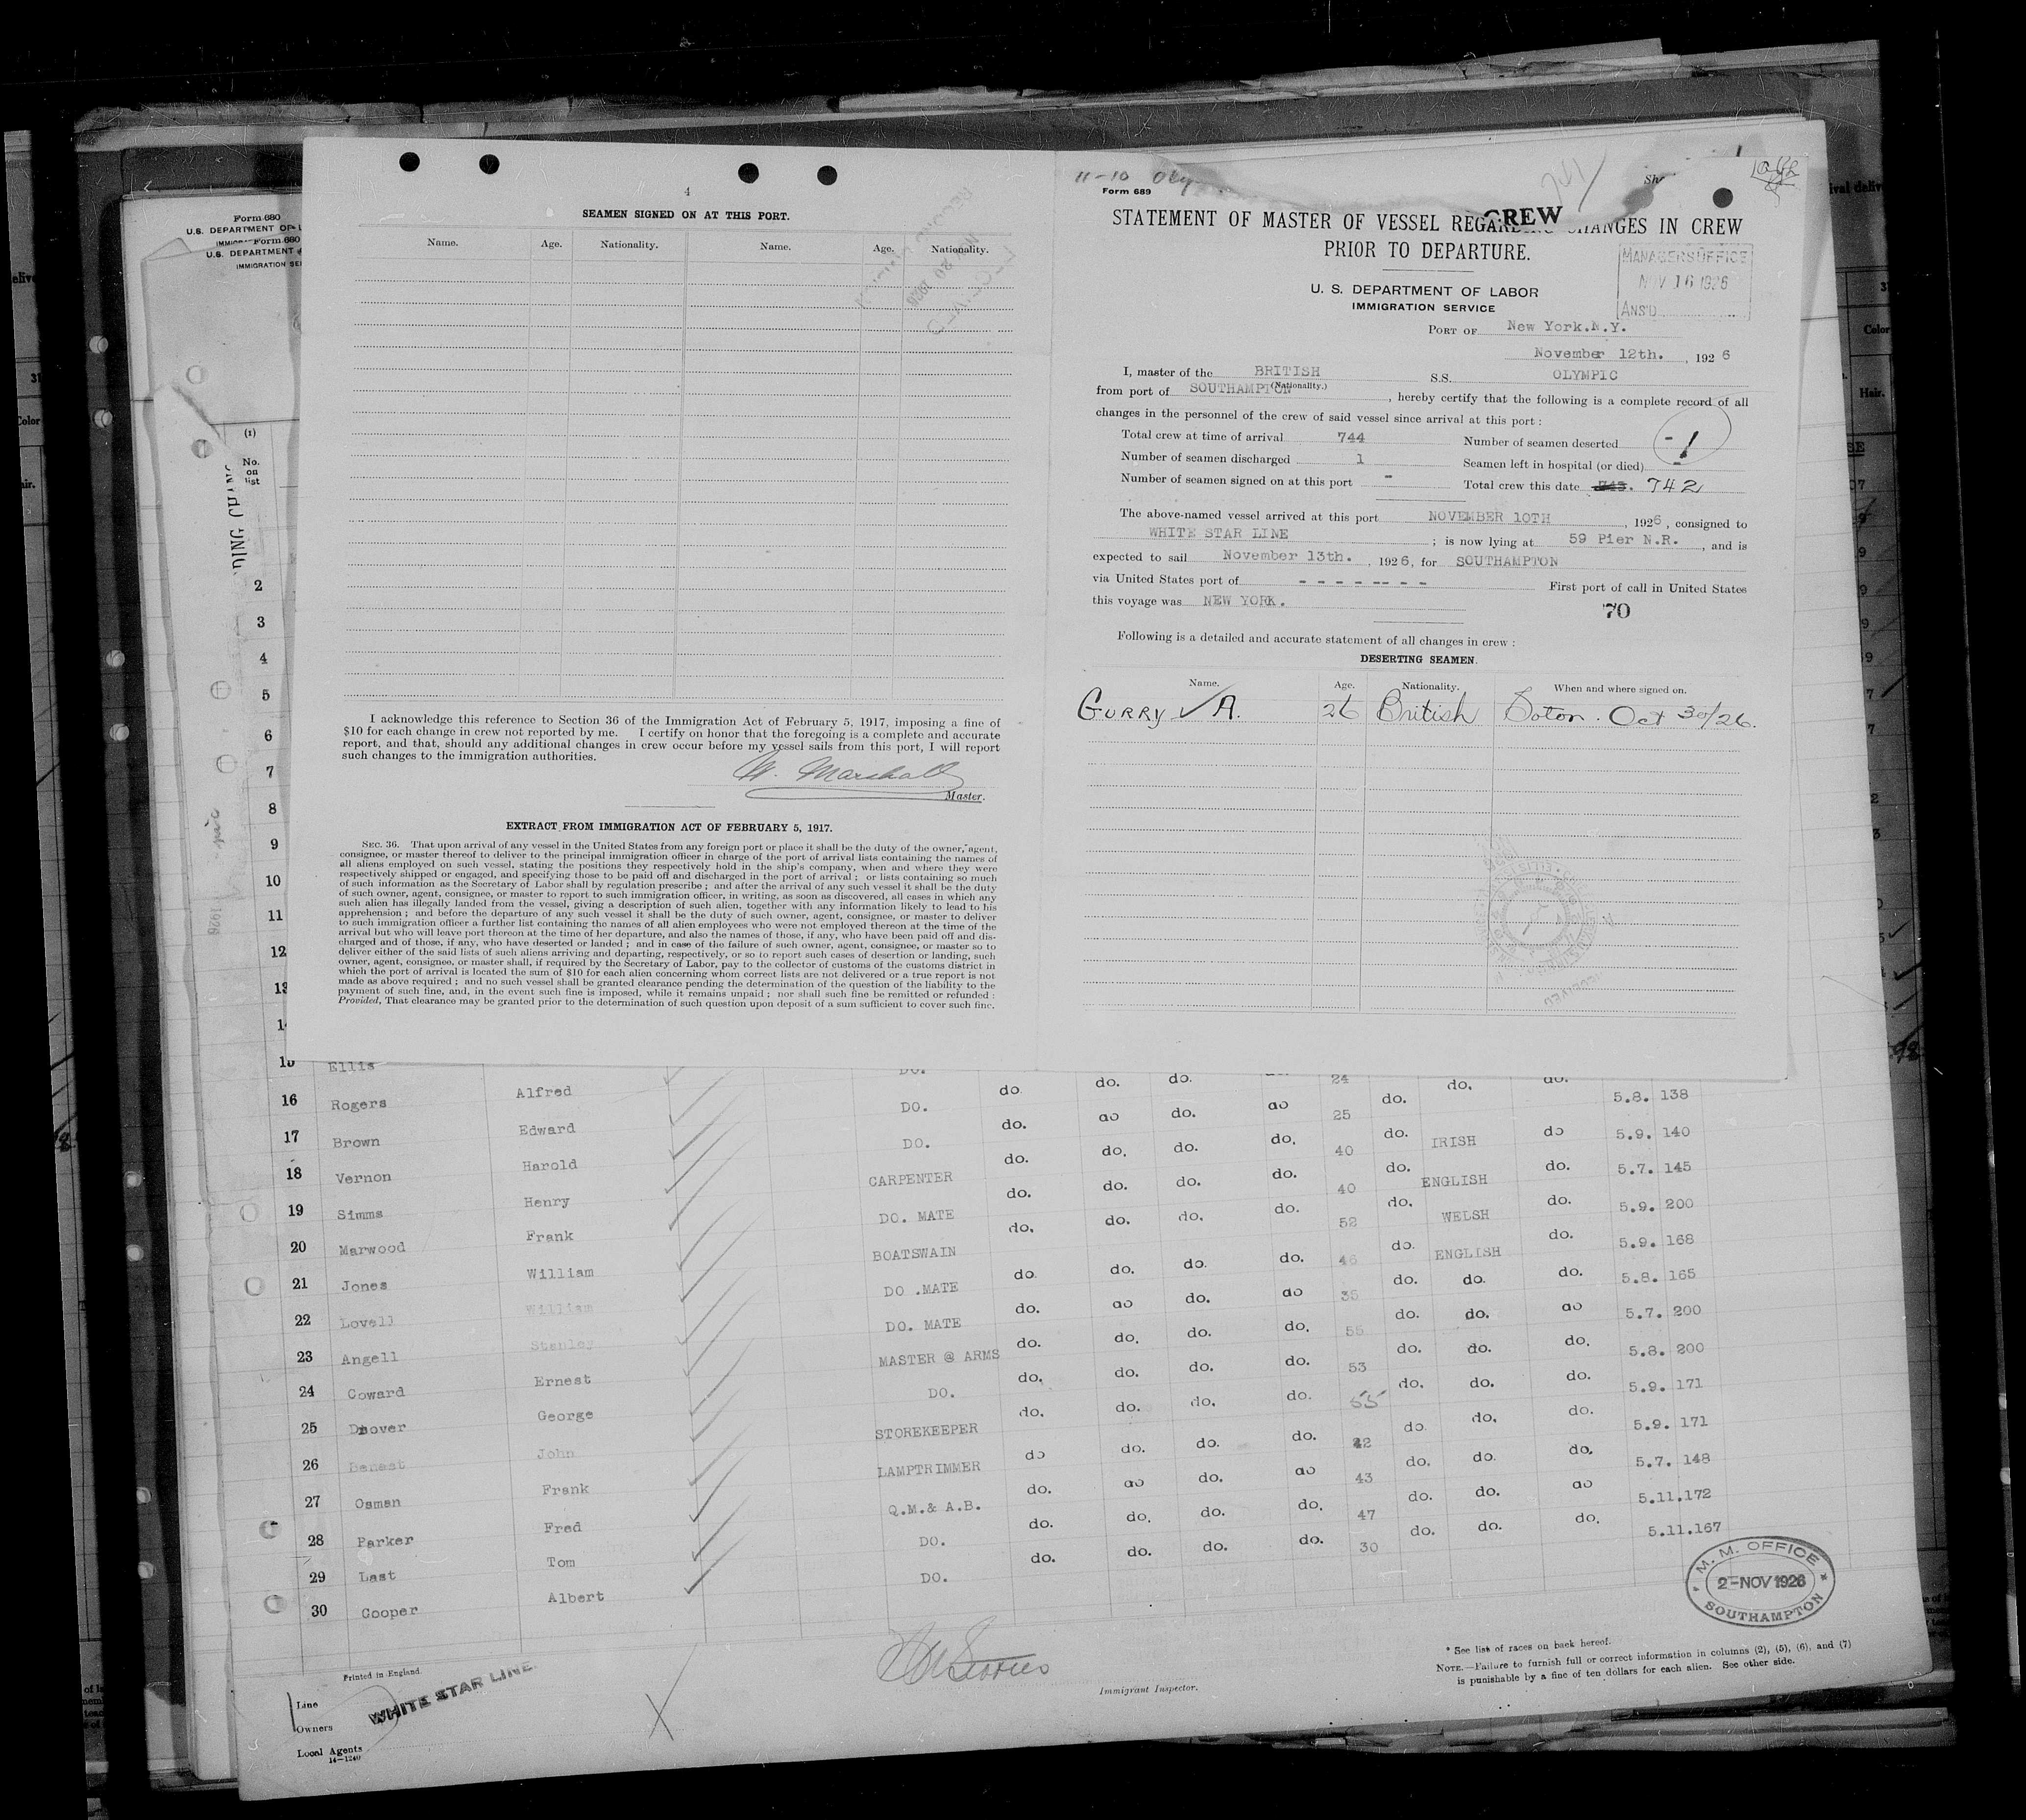 4
SEAMEN SIGNED ON AT THIS PORT.
Name. Age. Nationality. Name. Age. Nationality.
I acknowledge this reference to Section 36 of the Immigration Act of February 5, 1917, imposing a fine of
$10 for each change in crew not reported by me. I certify on honor that the foregoing is a complete and accurate
report, and that, should any additional changes in crew occur before my vessel sails from this port, I will report
such changes to the immigration authorities.
W. Marshall
Master.
EXTRACT FROM IMMIGRATION ACT OF FEBRUARY 5, 1917.
SEC. 36. That upon arrival of any vessel in the United States from any foreign port or place it shall be the duty of the owner, agent,
consignee, or master thereof to deliver to the principal immigration officer in charge of the port of arrival lists containing the names of
all aliens employed on such vessel, stating the positions they respectively hold in the ship's company, when and where they were
respectively shipped or engaged, and specifying those to be paid off and discharged in the port of arrival ; or lists containing so much
of such information as the Secretary of Labor shall by regulation prescribe ; and after the arrival of any such vessel it shall be the duty
of such owner, agent, consignee, or master to report to such immigration officer, in writing, as soon as discovered, all cases in which any
such alien has illegally landed from the vessel, giving a description of such alien, together with any information likely to lead to his
apprehension ; and before the departure of any such vessel it shall be the duty of such owner, agent, consignee, or master to deliver
to such immigration officer a further list containing the names of all alien employees who were not employed thereon at the time of the
arrival but who will leave port thereon at the time of her departure, and also the names of those, if any, who have been paid off and dis-
charged and of those, if any, who have deserted or landed ; and in case of the failure of such owner, agent, consignee, or master so to
deliver either of the said lists of such aliens arriving and departing, respectively, or so to report such cases of desertion or landing, such
owner, agent, consignee, or master shall, if required by the Secretary of Labor, pay to the collector of customs of the customs district in
which the port of arrival is located the sum of $10 for each alien concerning whom correct lists are not delivered or a true report is not
made as above required ; and no such vessel shall be granted clearance pending the determination of the question of the liability to the
payment of such fine, and, in the event such fine is imposed, while it remains unpaid ; nor shall such fine be remitted or refunded :
Provided, That clearance may be granted prior to the determination of such question upon deposit of a sum sufficient to cover such fine.
11-10
Form 689
CREW
STATEMENT OF MASTER OF VESSEL REGARDING CHANGES IN CREW
PRIOR TO DEPARTURE.
MANAGERS OFFICE
NOV 16 1926
ANS'D
U. S. DEPARTMENT OF LABOR
IMMIGRATION SERVICE
PORT OF New York.N.Y.
November 12th. , 1926
I, master of the BRITISH S.S. OLYMPIC
(Nationality.)
from port of SOUTHAMPTON , hereby certify that the following is a complete record of all
changes in the personnel of the crew of said vessel since arrival at this port :
Total crew at time of arrival 744 Number of seamen deserted - 1
Number of seamen discharged 1 Seamen left in hospital (or died) -
Number of seamen signed on at this port - Total crew this date 743. 742
The above-named vessel arrived at this port NOVEMBER 10TH , 1926, consigned to
WHITE STAR LINE ; is now lying at 59 Pier N.R. , and is
expected to sail November 13th. , 1926, for SOUTHAMPTON
via United States port of - - - - - - - - First port of call in United States
this voyage was NEW YORK.
70
Following is a detailed and accurate statement of all changes in crew :
DESERTING SEAMEN.
Name. Age. Nationality. When and where signed on.
GURRY ✓ A. 26 British Soton. Oct 30/26.
Form 680
U.S. DEPARTMENT OF L
Form 680
U.S. DEPARTMENT
IMMIGRATION SE
(1)
No.
on
list
DING CHANG
2
3
4
5
6
7
8
9
10
11
12
13
15 Ellis DO. 24
16 Rogers Alfred DO. do. do. do. 25 do. do. 5.8. 138
17 Brown Edward DO. do. do. do. do. 40 do. IRISH do 5.9. 140
18 Vernon Harold CARPENTER do. do. do. do. 40 do. ENGLISH do. 5.7. 145
19 Simms Henry DO. MATE do. do. do. do. 52 do. WELSH do. 5.9. 200
20 Marwood Frank BOATSWAIN do. do. do. do. 46 do. ENGLISH do. 5.9. 168
21 Jones William DO .MATE do. do. do. do. 35 do. do. do. 5.8. 165
22 Lovell William DO. MATE do. do do. do 55 do. do. do 5.7. 200
23 Angell Stanley MASTER @ ARMS do. do. do. do. 53 do. do. do. 5.8. 200
24 Coward Ernest DO. do. do. do. do. 55 do. do. do. 5.9. 171
25 Drover George STOREKEEPER do. do. do. do. 42 do. do. do. 5.9. 171
26 John LAMPTRIMMER do do. do. do. 43 do. do. do. 5.7. 148
27 Osman Frank Q.M.& A.B. do. do do. do 47 do. do. do 5.11.172
28 Parker Fred DO. do. do. do. do. 30 do. do. do. 5.11.167
29 Last Tom DO. do. do. do. do.
30 Cooper Albert
M. M. OFFICE
2-NOV 1926
SOUTHAMPTON
Printed in England.
Line
Owners
WHITE STAR LINE
Local Agents
14-1240
Immigrant Inspector.
* See list of races on back hereof.
NOTE.—Failure to furnish full or correct information in columns (2), (5), (6), and (7)
is punishable by a fine of ten dollars for each alien. See other side.
ival deliv
Color
Hair.